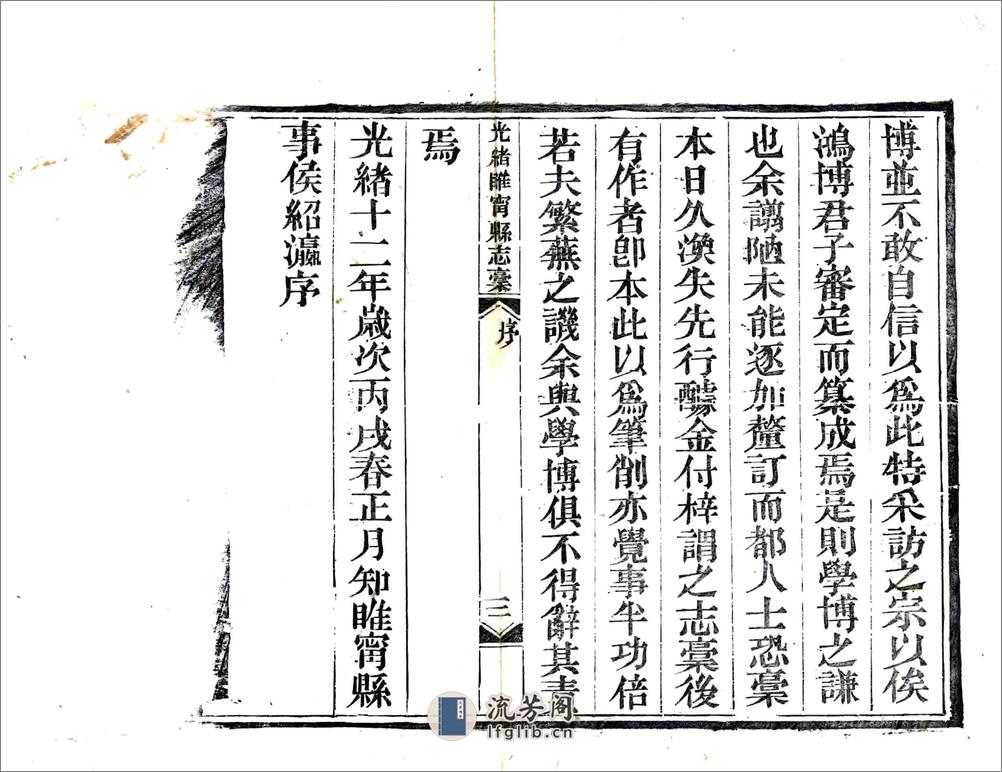 博並不敢自信以爲此特采訪之宗以俟
鴻博君子審定而纂成焉是則學博之謙
也余譾陋未能逐加釐訂而都人士恐稾
本日久渙失先行醵金付梓謂之志稾後
有作者卽本此以爲筆削亦覺事半功倍
若夫繁蕪之譏余與學博俱不得辭其責
焉
光緒睢甯縣志稾
序
三
光緒十二年歲次丙戌春正月知睢甯縣
事侯紹瀛序
流芳阁
lfglib.cn